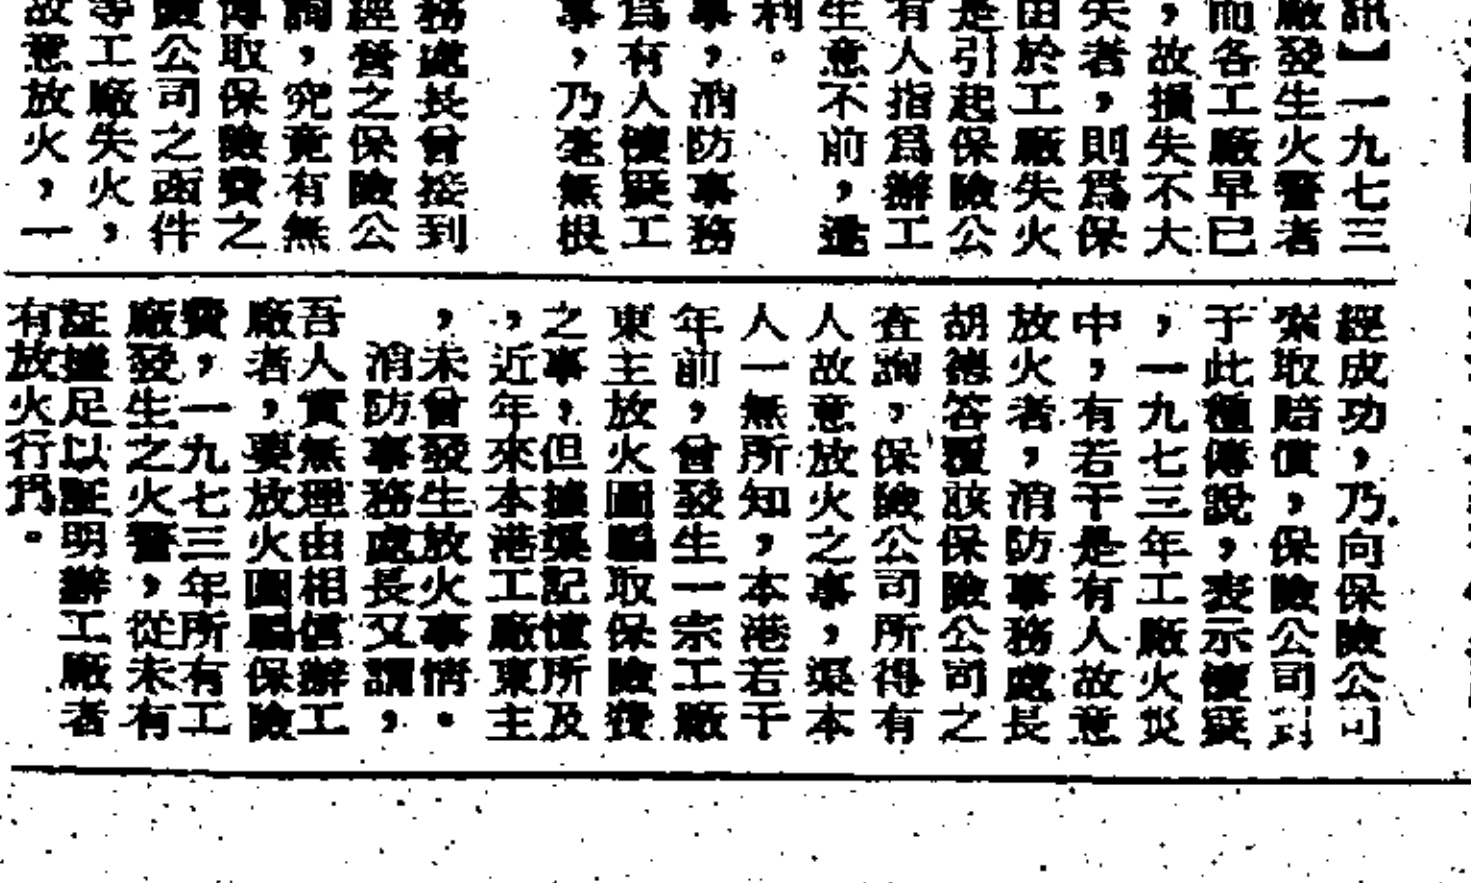 訊】一九七三
廠發生火警者
而各工廠早已
，故損失不大
失者，則爲保
由於工廠失火
是引起保險公
有人指爲辦工
生意不前，
利。
事，消防事務
爲有人懷疑工
事，乃毫無根
務處長曾接到
經營之保險公
詢，究竟有無
博取保險費之
險公司之函件
等工廠失火，
故意放火，一
經成功，乃向保險公司
索取賠償，保險公司對
于此種傳說，表示懷疑
，一九七三年工廠火災
中，有若干是有人故意
放火者，消防事務處長
胡德答覆該保險公司之
查詢，保險公司所得有
人故意放火之事，渠本
人一無所知，本港若干
年前，曾發生一宗工廠
東主放火圖騙取保險費
之事，但據渠記憶所及
，近年來本港工廠東主
，未曾發生放火事情。
消防事務處長又謂，
吾人實無理由相信辦工
廠者，要放火圖騙保險
費，一九七三年所有工
廠發生之火警，從未有
証據足以証明辦工廠者
有放火行爲。